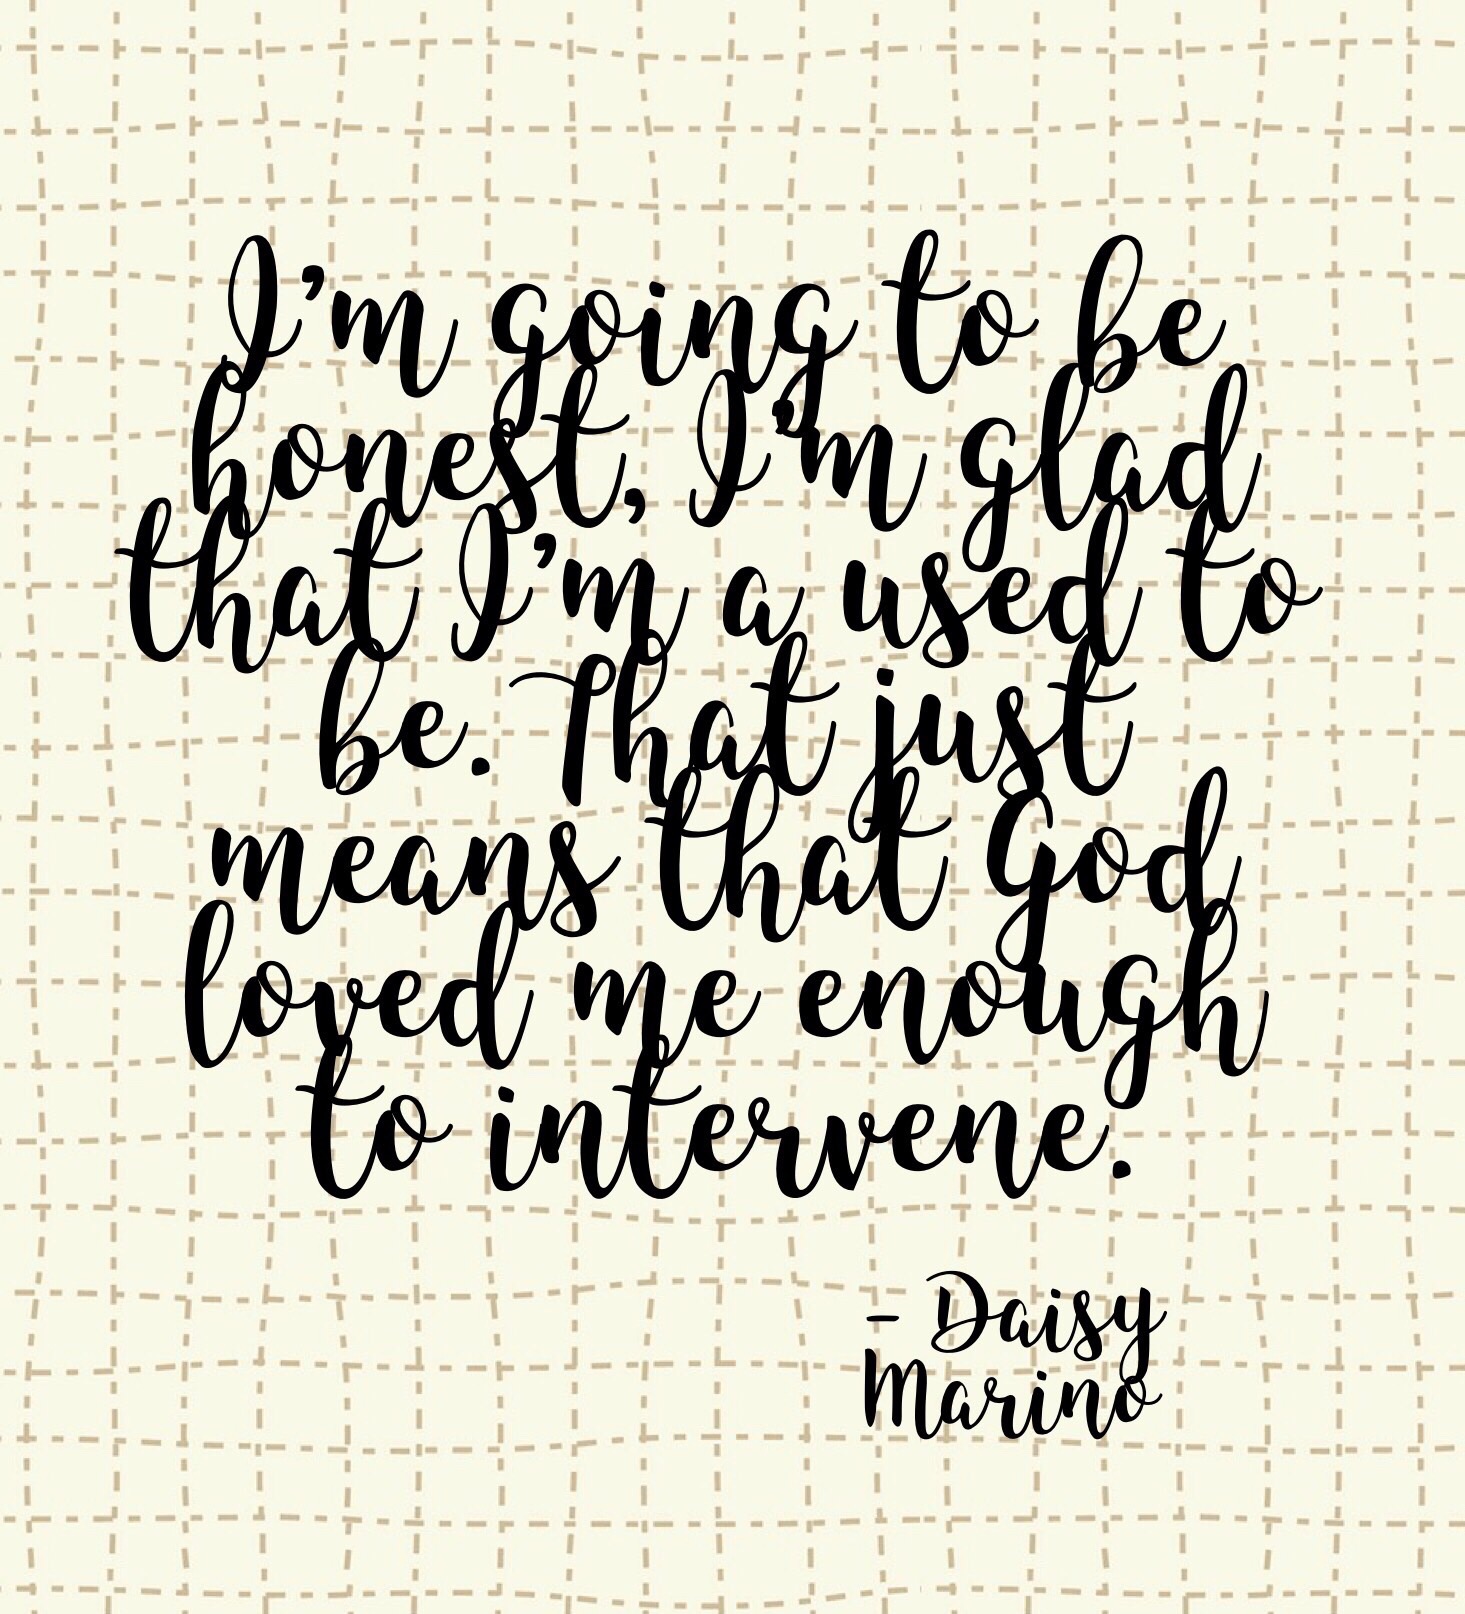 I'm going to be
honest, I'm glad
that I'm a used to
be. That just
means that God
loved me enough
to intervene.
- Daisy
Marino